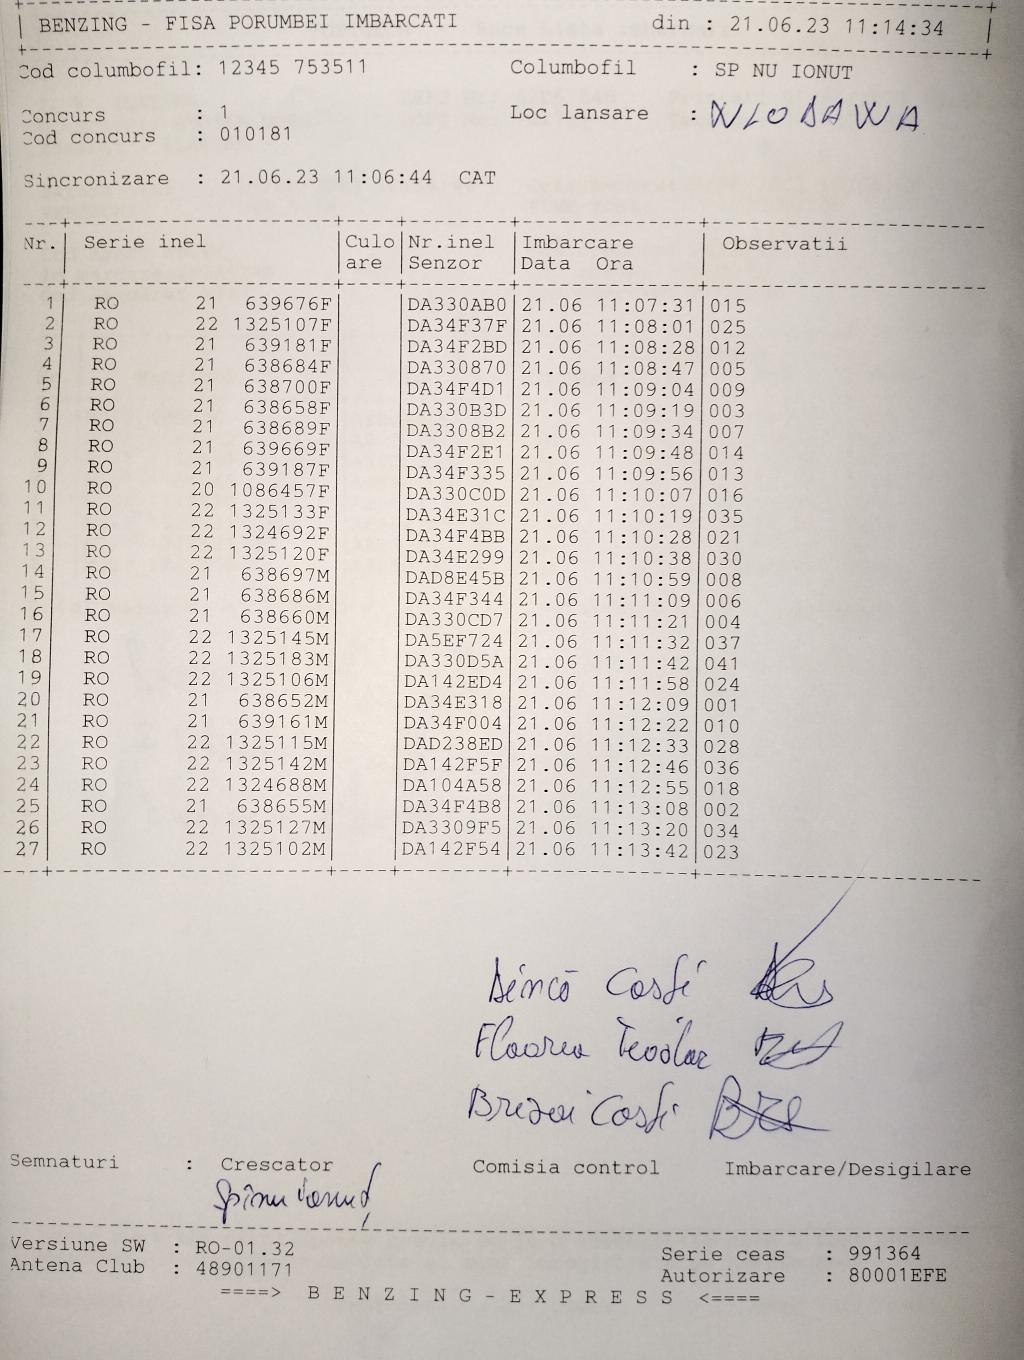 BENZING - FISA PORUMBEI IMBARCATI din : 21.06.23 11:14:34
Cod columbofil: 12345 753511 Columbofil : SP NU IONUT
Concurs : 1 Loc lansare : WLODAWA
Cod concurs : 010181
Sincronizare : 21.06.23 11:06:44 CAT
Nr. Serie inel Culo Nr.inel Imbarcare Observatii
are Senzor Data Ora
1 RO 21 639676F DA330AB0 21.06 11:07:31 015
2 RO 22 1325107F DA34F37F 21.06 11:08:01 025
3 RO 21 639181F DA34F2BD 21.06 11:08:28 012
4 RO 21 638684F DA330870 21.06 11:08:47 005
5 RO 21 638700F DA34F4D1 21.06 11:09:04 009
6 RO 21 638658F DA330B3D 21.06 11:09:19 003
7 RO 21 638689F DA3308B2 21.06 11:09:34 007
8 RO 21 639669F DA34F2E1 21.06 11:09:48 014
9 RO 21 639187F DA34F335 21.06 11:09:56 013
10 RO 20 1086457F DA330C0D 21.06 11:10:07 016
11 RO 22 1325133F DA34E31C 21.06 11:10:19 035
12 RO 22 1324692F DA34F4BB 21.06 11:10:28 021
13 RO 22 1325120F DA34E299 21.06 11:10:38 030
14 RO 21 638697M DAD8E45B 21.06 11:10:59 008
15 RO 21 638686M DA34F344 21.06 11:11:09 006
16 RO 21 638660M DA330CD7 21.06 11:11:21 004
17 RO 22 1325145M DA5EF724 21.06 11:11:32 037
18 RO 22 1325183M DA330D5A 21.06 11:11:42 041
19 RO 22 1325106M DA142ED4 21.06 11:11:58 024
20 RO 21 638652M DA34E318 21.06 11:12:09 001
21 RO 21 639161M DA34F004 21.06 11:12:22 010
22 RO 22 1325115M DAD238ED 21.06 11:12:33 028
23 RO 22 1325142M DA142F5F 21.06 11:12:46 036
24 RO 22 1324688M DA104A58 21.06 11:12:55 018
25 RO 21 638655M DA34F4B8 21.06 11:13:08 002
26 RO 22 1325127M DA3309F5 21.06 11:13:20 034
27 RO 22 1325102M DA142F54 21.06 11:13:42 023
Costi
Floorea Teodor
Costi
Semnaturi : Crescator Comisia control Imbarcare/Desigilare
Spînu Ionuț
Versiune SW : RO-01.32 Serie ceas : 991364
Antena Club : 48901171 Autorizare : 80001EFE
====> B E N Z I N G - E X P R E S S <====